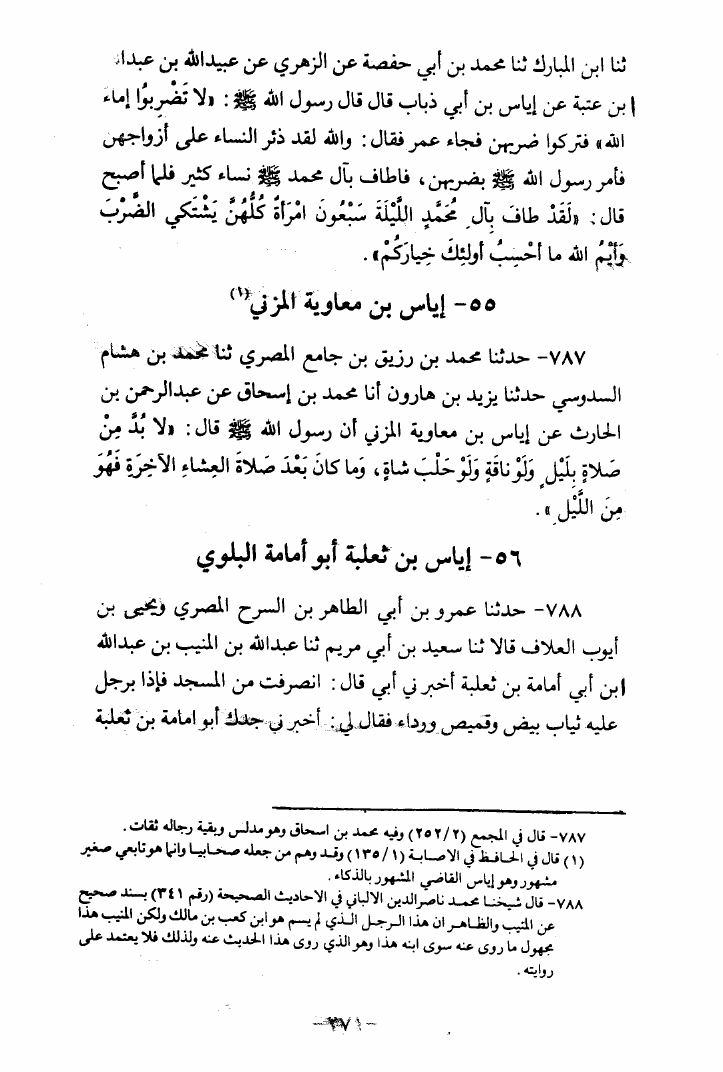 ثنا ابن المبارك ثنا محمد بن أبي حفصة عن الزهري عن عبيدالله بن عبدالله
ابن عتبة عن إياس بن أبي ذباب قال قال رسول الله ﷺ: «لا تَضْرِبُوا إماء
الله» فتركوا ضربهن فجاء عمر فقال: والله لقد ذئر النساء على أزواجهن
فأمر رسول الله ﷺ بضربهن، فاطاف بآل محمد ﷺ نساء كثير فلما أصبح
قال: «لَقَدْ طافَ بِآلِ مُحَمَّدٍ اللَّيْلَةَ سَبْعُونَ امْرَأةً كُلُّهُنَّ يَشْتَكي الضَّرْبَ
وَأيْمُ الله ما أحْسِبُ أولئِكَ خِيارَكُمْ».
٥٥- إياس بن معاوية المزني(١)
٧٨٧- حدثنا محمد بن رزيق بن جامع المصري ثنا محمد بن هشام
السدوسي حدثنا يزيد بن هارون أنا محمد بن إسحاق عن عبدالرحمن بن
الحارث عن إياس بن معاوية المزني أن رسول الله ﷺ قال: «لا بُدَّ مِنْ
صَلاةٍ بِلَيْلٍ وَلَوْ ناقَةٍ وَلَوْ حَلْبَ شاةٍ، وَما كانَ بَعْدَ صَلاةَ العِشاءِ الآخِرَةِ فَهُوَ
مِنَ اللَّيْلِ».
٥٦- إياس بن ثعلبة أبو أمامة البلوي
٧٨٨- حدثنا عمرو بن أبي الطاهر بن السرح المصري ويحيى بن
أيوب العلاف قالا ثنا سعيد بن أبي مريم ثنا عبدالله بن المنيب بن عبدالله
ابن أبي أمامة بن ثعلبة أخبرني أبي قال: انصرفت من المسجد فإذا برجل
عليه ثياب بيض وقميص ورداء فقال لي: أخبرني جدك أبو امامة بن ثعلبة
٧٨٧- قال في المجمع (٢٥٢/٢) وفيه محمد بن اسحاق وهو مدلس وبقية رجاله ثقات.
(١) قال في الحافظ في الاصابة (١٣٥/١) وقد وهم من جعله صحابيا وانما هو تابعي صغير
مشهور وهو إياس القاضي المشهور بالذكاء.
٧٨٨- قال شيخنا محمد ناصرالدين الالباني في الاحاديث الصحيحة (رقم ٣٤١) بسند صحيح
عن المنيب والظاهر ان هذا الرجل الذي لم يسم هو ابن كعب بن مالك ولكن المنيب هذا
مجهول ما روى عنه سوى ابنه هذا وهو الذي روى هذا الحديث عنه ولذلك فلا يعتمد على
روايته.
-٢٧١-